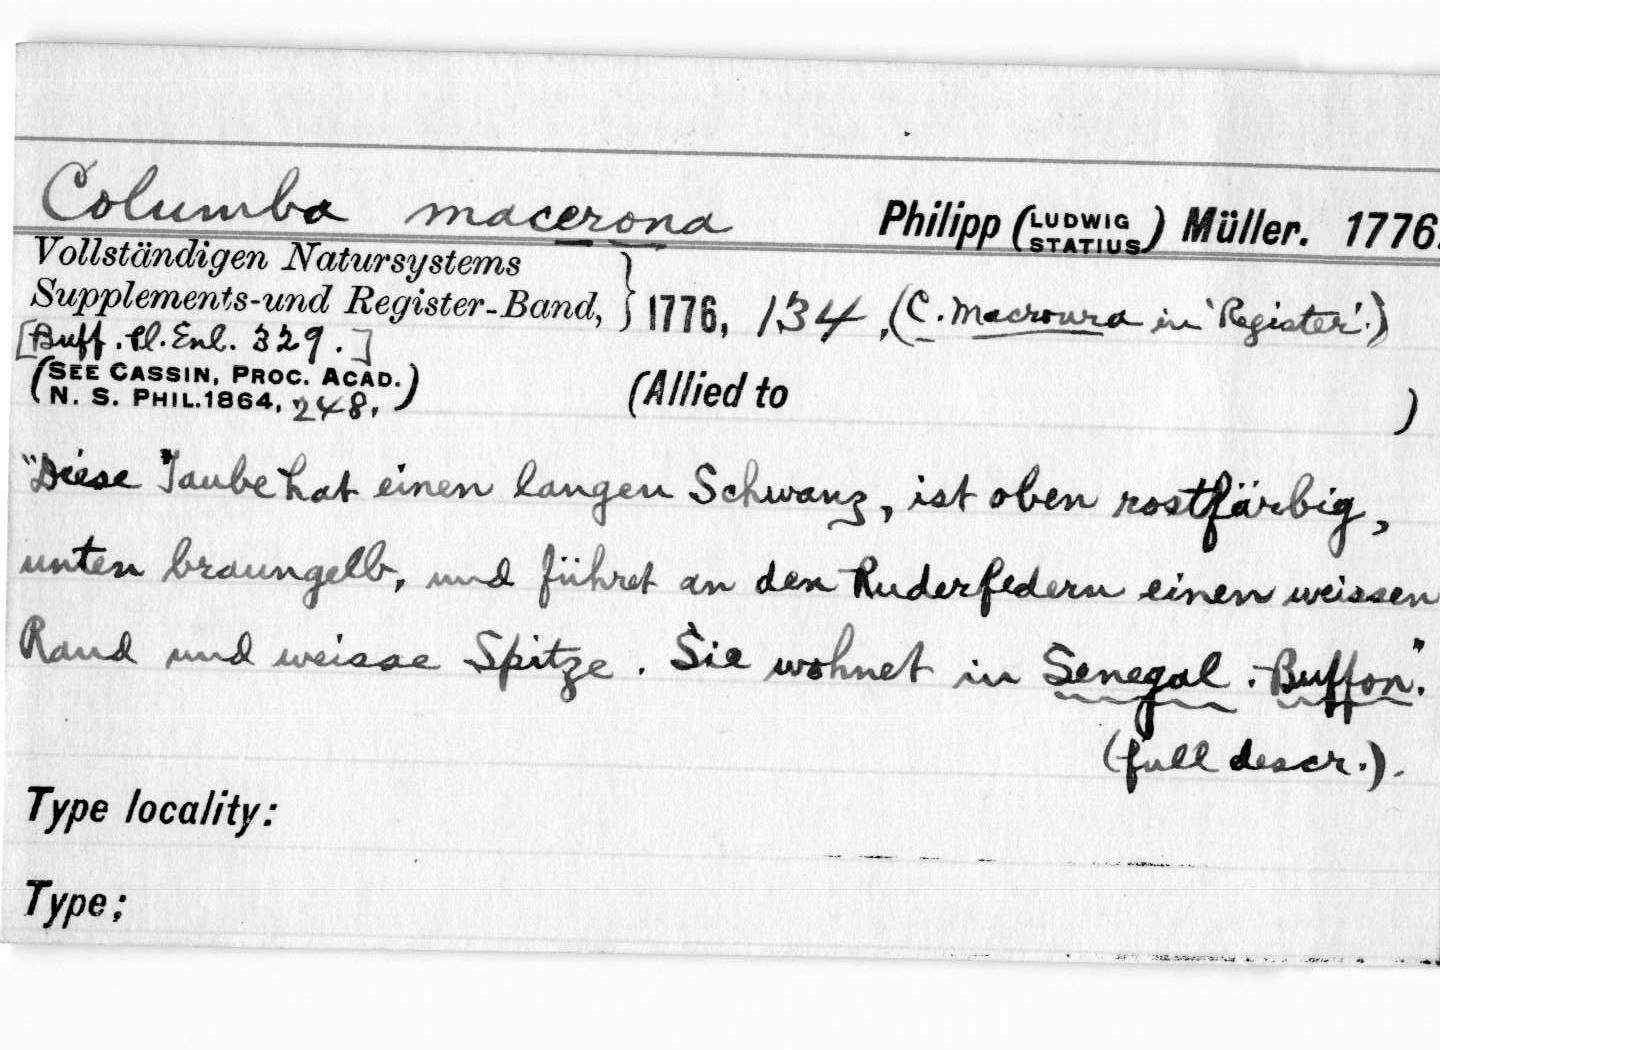 Columba macerona Philipp (LUDWIG STATIUS) Müller. 1776.
Vollständigen Natursystems
Supplements-und Register-Band, } 1776, 134, (C. macroura in 'Register'.)
[Buff. Pl. Enl. 329.]
(SEE CASSIN, PROC. ACAD.
N. S. PHIL. 1864, 248,) (Allied to )
"Diese Taube hat einen langen Schwanz, ist oben rostfärbig,
unten braungelb, und führet an den Ruderfedern einen weissen
Rand und weisse Spitze. Sie wohnet in Senegal. Buffon."
(full descr.).
Type locality:
Type;